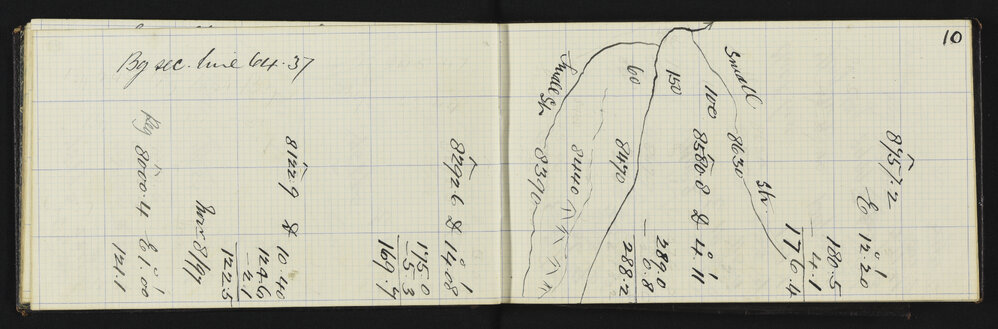 By sec. line 64.37
8000.4 E 1° 00'
121.1
Nov. 8/97
8122.9 & 10.40
124.6
-2.1
122.5
8292.6 & 1° 08'
175.0
-5.3
169.7
10
Small Str.
8390
8440
8470
60
150
100
Small
8630
Str.
289.0
- 0.8
288.2
8580.8 & 4° 11'
8757.2
E 12° 20'
180.5
- 4.1
176.4